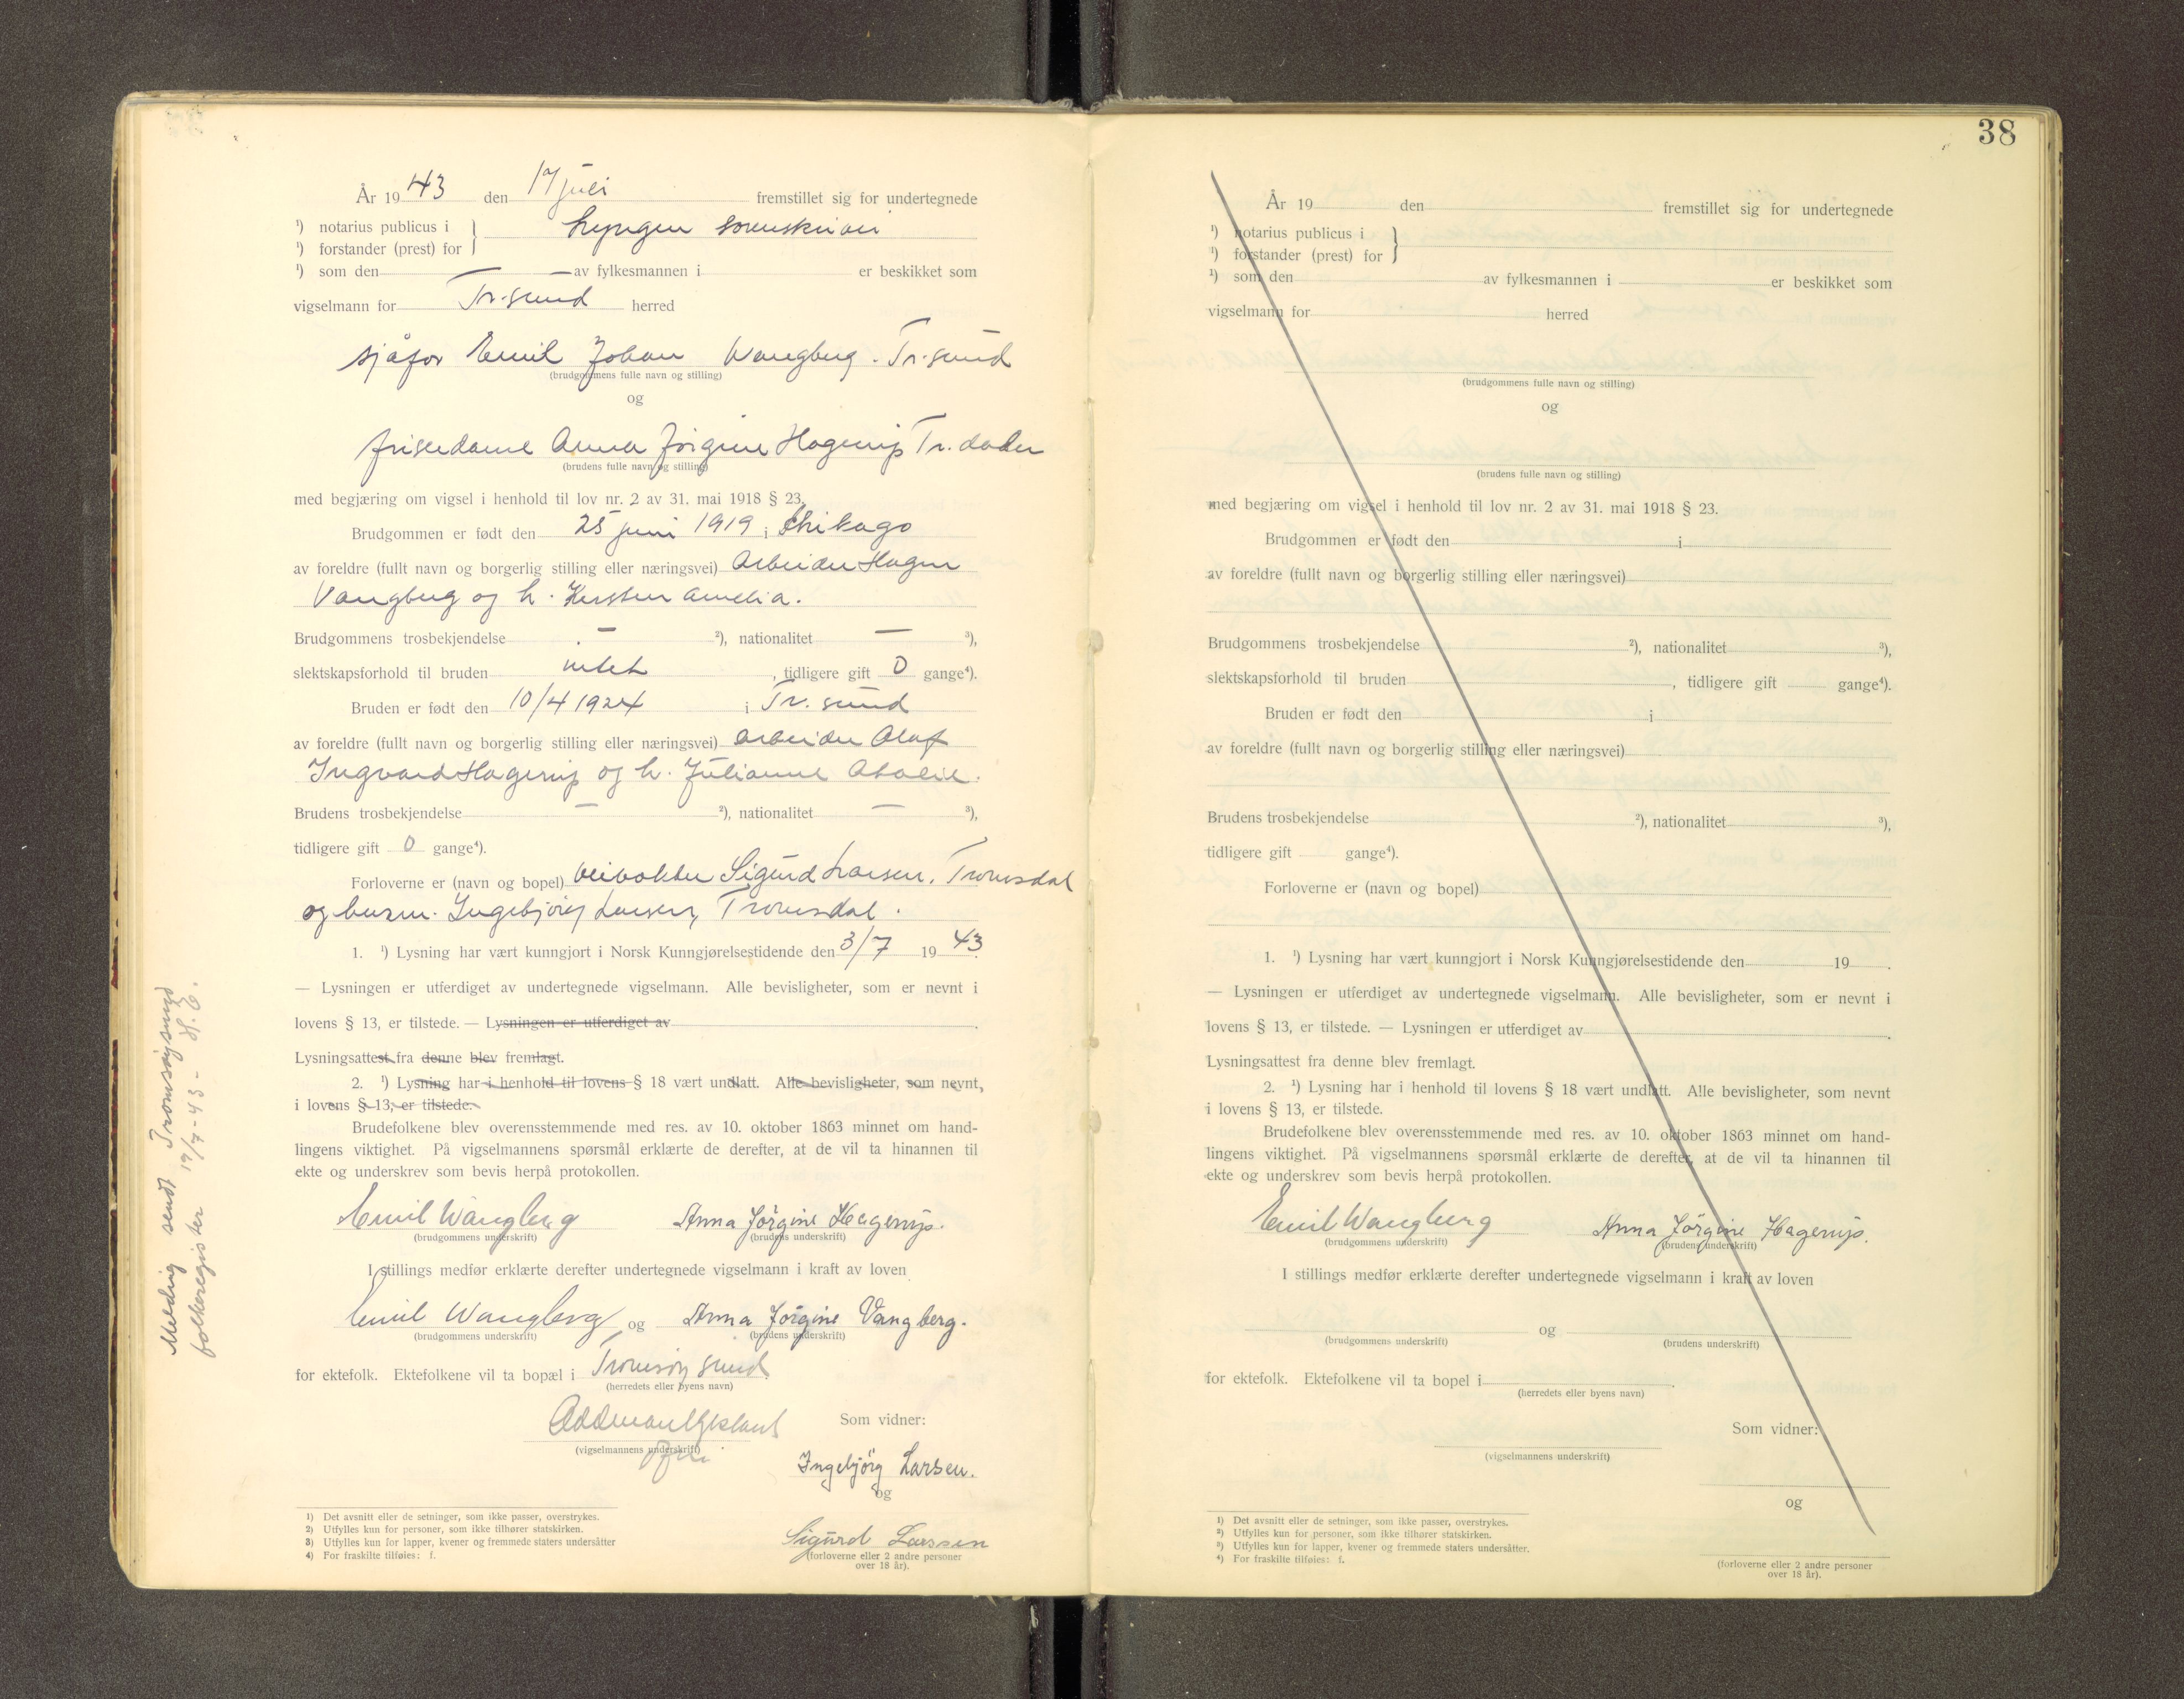 År 1943 den 17 juli fremstillet sig for undertegnede
¹) notarius publicus i } Lyngen sorenskriveri
¹) forstander (prest) for
¹) som den — av fylkesmannen i er beskikket som
vigselmann for Tr.sund herred
sjåfør Emil Johan Wangberg. Tr.sund
(brudgommens fulle navn og stilling)
og
friserdame Anna Jørgine Hagerup Tr.dalen
(brudens fulle navn og stilling)
med begjæring om vigsel i henhold til lov nr. 2 av 31. mai 1918 § 23.
Brudgommen er født den 25 juni 1919 i Chikago
av foreldre (fullt navn og borgerlig stilling eller næringsvei) Arbeider Hagen
Vangberg og h. Kirsten Amelia.
Brudgommens trosbekjendelse — ²), nationalitet — ³),
slektskapsforhold til bruden intet , tidligere gift 0 gange⁴).
Bruden er født den 10/4 1924 i Tr.sund
av foreldre (fullt navn og borgerlig stilling eller næringsvei) arbeider Olaf
Ingvard Hagerup og h. Julianne
Brudens trosbekjendelse — ²), nationalitet — ³),
tidligere gift 0 gange⁴).
Forloverne er (navn og bopel) veivokter Sigurd Larsen, Tromsdal
og husm. Ingebjörg Larsen, Tromsdal.
1. ¹) Lysning har vært kunngjort i Norsk Kunngjørelsestidende den 3/7 1943
— Lysningen er utferdiget av undertegnede vigselmann. Alle bevisligheter, som er nevnt i
lovens § 13, er tilstede. — Lysningen er utferdiget av
Lysningsattest fra denne blev fremlagt.
2. ¹) Lysning har i henhold til lovens § 18 vært undlatt. Alle bevisligheter, som nevnt,
i lovens § 13, er tilstede.
Brudefolkene blev overensstemmende med res. av 10. oktober 1863 minnet om hand-
lingens viktighet. På vigselmannens spørsmål erklærte de derefter, at de vil ta hinannen til
ekte og underskrev som bevis herpå protokollen.
Emil Wangberg Anna Jörgine Hagerup.
(brudgommens underskrift) (brudens underskrift)
I stillings medfør erklærte derefter undertegnede vigselmann i kraft av loven
Emil Wangberg og Anna Jörgine Vangberg.
(brudgommens underskrift) (brudens underskrift)
for ektefolk. Ektefolkene vil ta bopæl i Tromsøysund
(herredets eller byens navn)
Som vidner:
(vigselmannens underskrift)
Ingebjörg Larsen.
og
Sigurd Larssen
(forloverne eller 2 andre personer
over 18 år).
1) Det avsnitt eller de setninger, som ikke passer, overstrykes.
2) Utfylles kun for personer, som ikke tilhører statskirken.
3) Utfylles kun for lapper, kvener og fremmede staters undersåtter
4) For fraskilte tilføies: f.
Melding sendt Tromsøysund
folkeregister 19/7-43 -
38
År 19 den fremstillet sig for undertegnede
¹) notarius publicus i }
¹) forstander (prest) for
¹) som den av fylkesmannen i er beskikket som
vigselmann for herred
(brudgommens fulle navn og stilling)
og
(brudens fulle navn og stilling)
med begjæring om vigsel i henhold til lov nr. 2 av 31. mai 1918 § 23.
Brudgommen er født den i
av foreldre (fullt navn og borgerlig stilling eller næringsvei)
Brudgommens trosbekjendelse ²), nationalitet ³),
slektskapsforhold til bruden , tidligere gift gange⁴).
Bruden er født den i
av foreldre (fullt navn og borgerlig stilling eller næringsvei)
Brudens trosbekjendelse ²), nationalitet ³),
tidligere gift gange⁴).
Forloverne er (navn og bopel)
1. ¹) Lysning har vært kunngjort i Norsk Kunngjørelsestidende den 19 .
— Lysningen er utferdiget av undertegnede vigselmann. Alle bevisligheter, som er nevnt i
lovens § 13, er tilstede. — Lysningen er utferdiget av .
Lysningsattest fra denne blev fremlagt.
2. ¹) Lysning har i henhold til lovens § 18 vært undlatt. Alle bevisligheter, som nevnt
i lovens § 13, er tilstede.
Brudefolkene blev overensstemmende med res. av 10. oktober 1863 minnet om hand-
lingens viktighet. På vigselmannens spørsmål erklærte de derefter, at de vil ta hinannen til
ekte og underskrev som bevis herpå protokollen.
Emil Wangberg Anna Jörgine Hagerup.
(brudgommens underskrift) (brudens underskrift)
I stillings medfør erklærte derefter undertegnede vigselmann i kraft av loven
og
(brudgommens underskrift) (brudens underskrift)
for ektefolk. Ektefolkene vil ta bopel i .
(herredets eller byens navn)
Som vidner:
(vigselmannens underskrift)
og
(forloverne eller 2 andre personer
over 18 år).
1) Det avsnitt eller de setninger, som ikke passer, overstrykes.
²) Utfylles kun for personer, som ikke tilhører statskirken.
³) Utfylles kun for lapper, kvener og fremmede staters undersåtter.
⁴) For fraskilte tilføies: f.